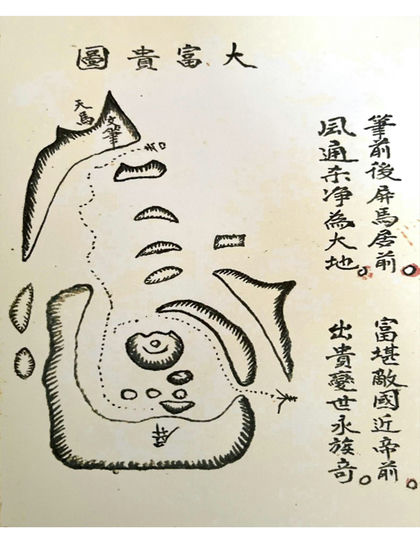 大富貴圖
筆前後屏馬居前。
富堪敵國近帝前。
風通净為大地。
出貴變世永族奇。
天馬
文筆
水口
屏